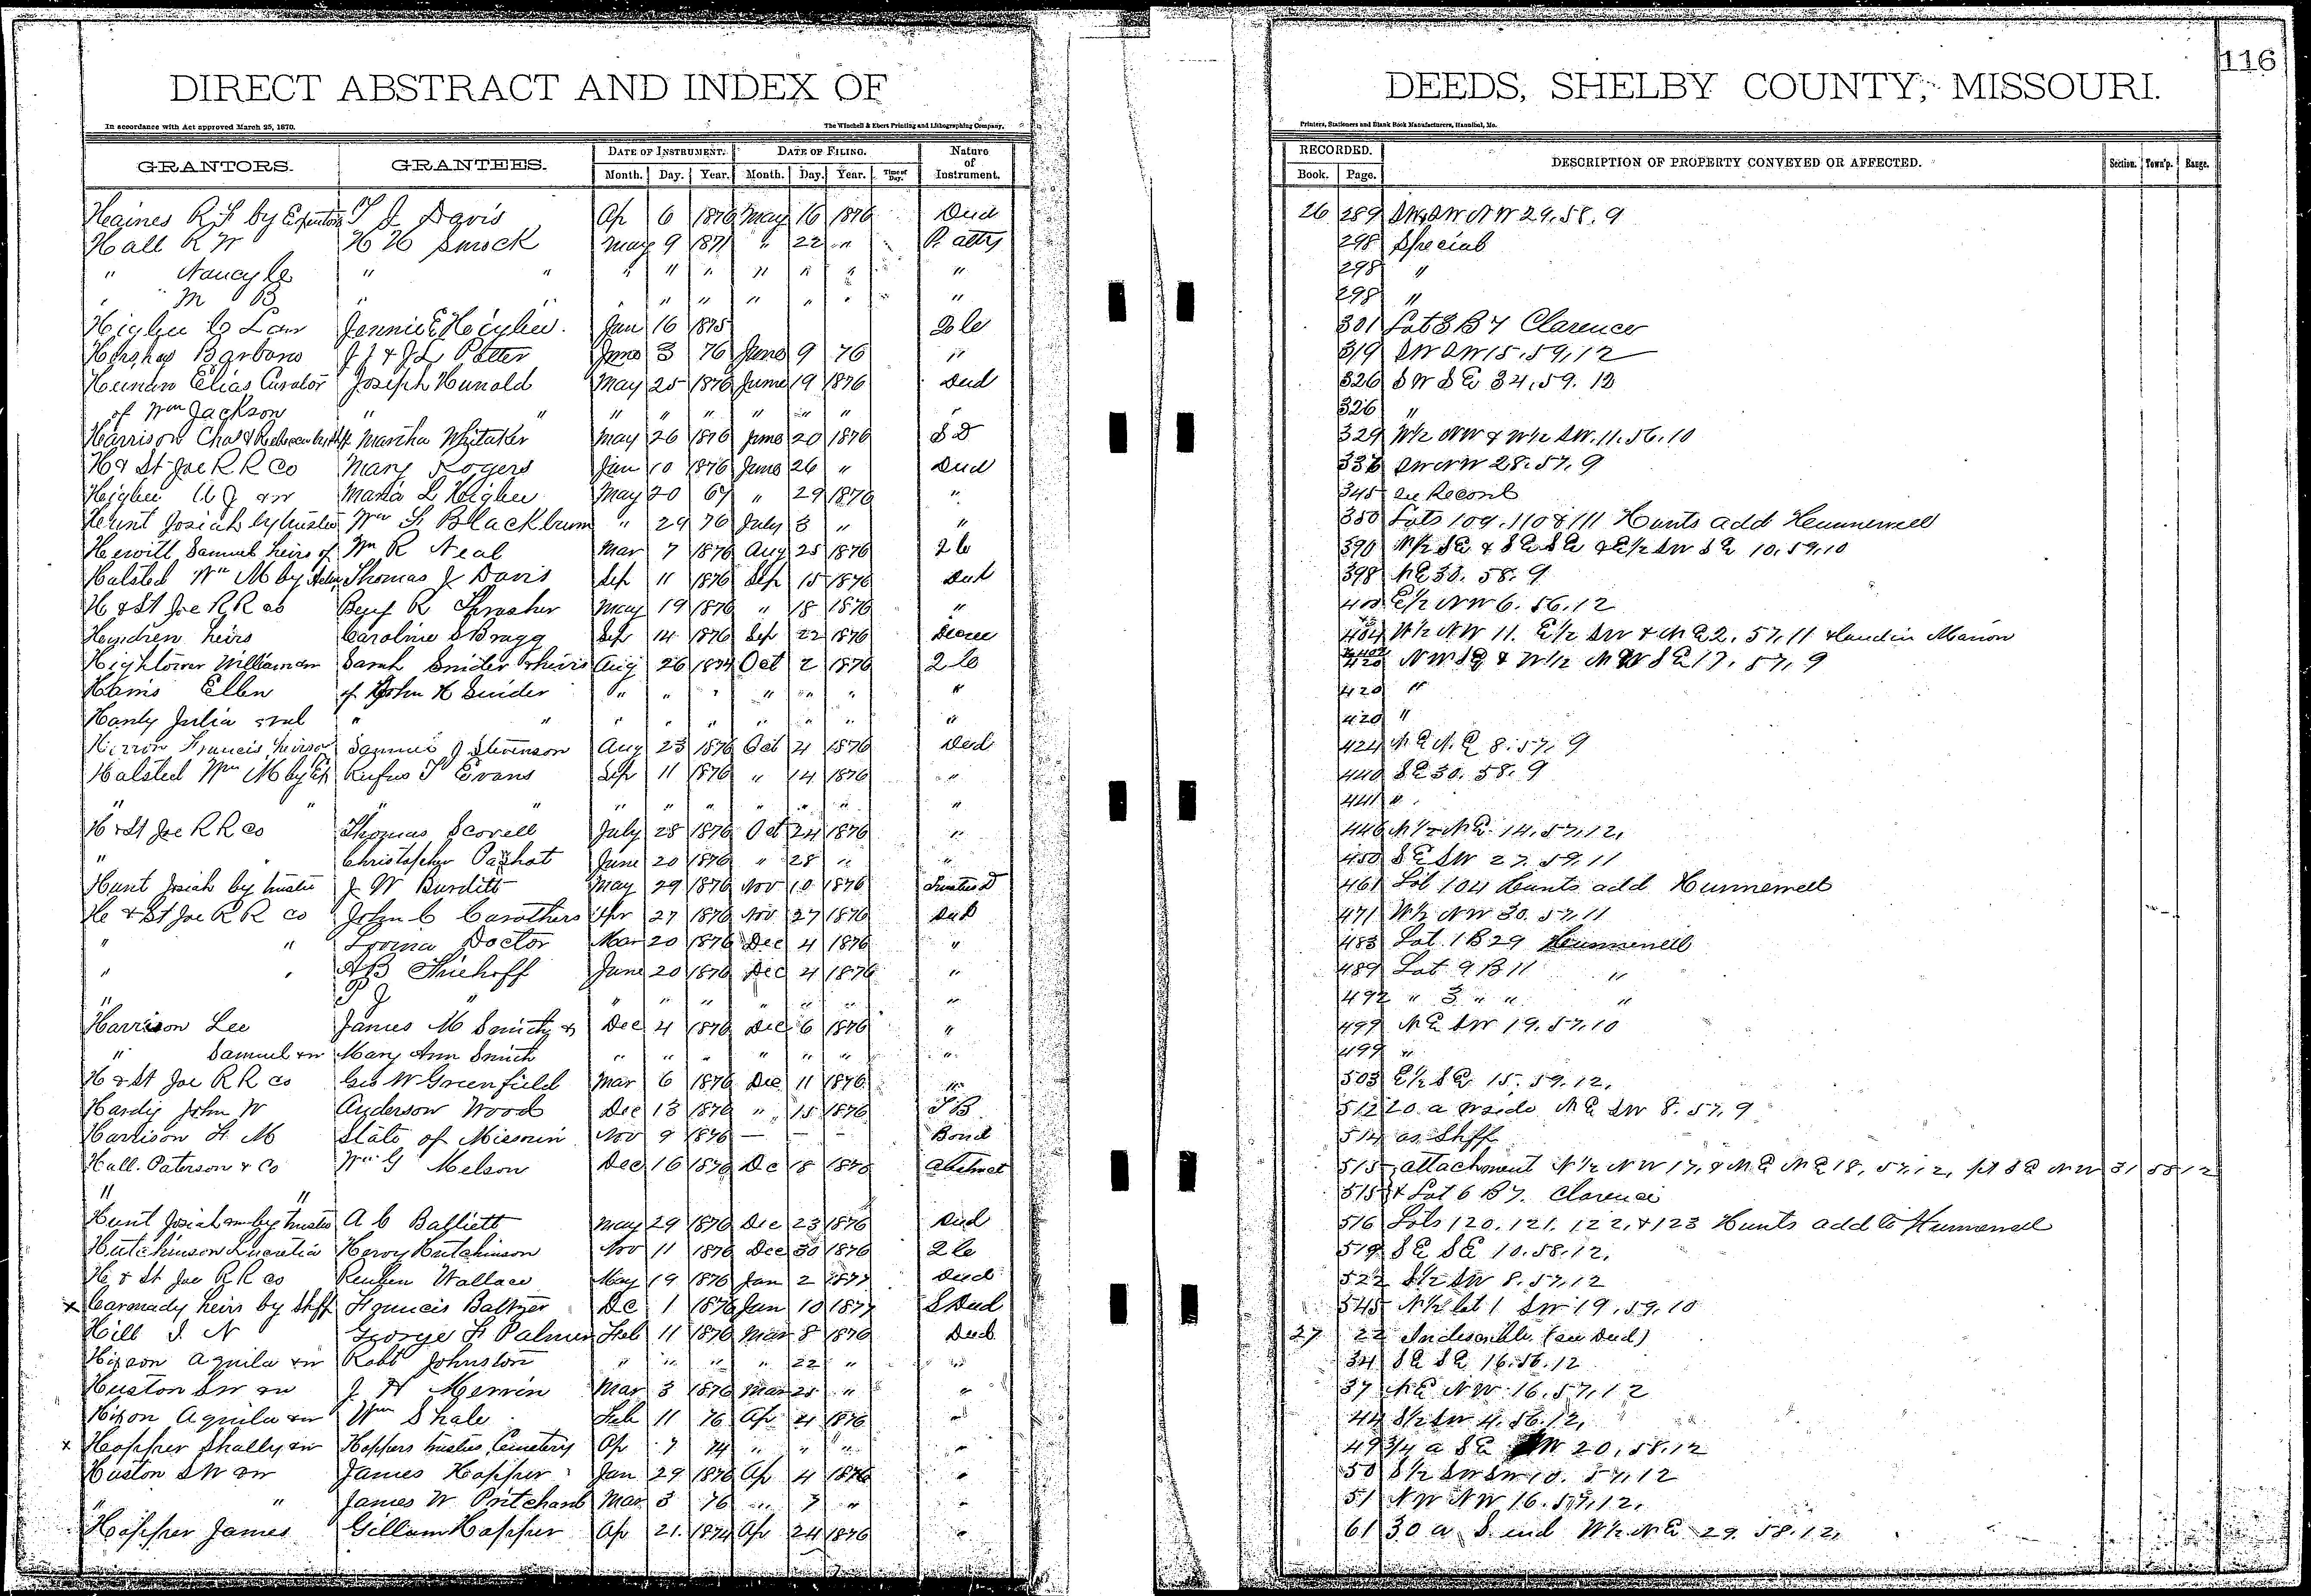 116
DIRECT ABSTRACT AND INDEX OF DEEDS, SHELBY COUNTY, MISSOURI.
In accordance with Act approved March 25, 1870. The Winchell & Ebert Printing and Lithographing Company, Printers, Stationers and Blank Book Manufacturers, Hannibal, Mo.
GRANTORS. GRANTEES. DATE OF INSTRUMENT. DATE OF FILING. Nature of Instrument. RECORDED. DESCRIPTION OF PROPERTY CONVEYED OR AFFECTED. Section. Town'p. Range.
Month. Day. Year. Month. Day. Year. Time of Day. Book. Page.
Haines R F by T J Davis Ap 6 1876 May 16 1876 Deed 26 289 SW NW 29.58.9
Hall R W H H Smock May 9 1871 " 22 " P. atty 298 Special
" Nancy C " " " " " " " " " 298 "
" M B " " " " " " " " " 298 "
Higbee C Jennie E Higbee Jan 16 1875 2 C 301 Lot 3 B 7 Clarence
Barbara J J & J L Potter June 3 76 June 9 76 " 319 SW SW 15,59,12
Elias Curator Joseph Hunold May 25 1876 June 19 1876 Deed 326 SW SE 34,59.12
of Wm Jackson " " " " " " " " " 326 "
Harrison Chas & Martha Whitaker May 26 1876 June 20 1876 S D 329 W½ NW & W½ SW. 11.56.10
H & St Joe R R Co Mary Rogers Jan 10 1876 June 26 " Deed SW NW 28.57.9
Higbee &w Maria L Higbee May 20 67 " 29 1876 " 345 See Record
Hunt Josiah by trustee Wm F Blackburn " 29 76 July 3 " " 350 Lots 109.110 & 111 Hunts add Hunnewell
Hewitt Samuel heirs of Wm R Neal Mar 7 1876 Aug 25 1876 2 C 390 N½ SE & SE SE & E½ SW SE 10,59,10
Halsted Wm M by Thomas J Davis Sep 11 1876 Sep 15 1876 Deed 398 NE 30. 58.9
H & St Joe R R Co Benj R Thrasher May 19 1876 " 18 1876 " E½ NW 6. 56.12
heirs Caroline S Bragg Sep 14 1876 Sep 22 1876 Decree 404 W½ NW 11. E½ SW & NE 2, 57,11 & land in Marion
Hightower William &w Sarah Snider & heirs Aug 26 1874 Oct 2 1876 2 C 420 NW SE & W½ SE 17, 57, 9
Harris Ellen of John H Snider " " " " " " " 420 "
Julia " " " " " " " " " 420 "
Francis heirs of Samuel J Stevenson Aug 23 1876 Oct 4 1876 Deed 424 NE NE 8.57.9
Halsted Wm M by Ex Rufus T Evans Sep 11 1876 " 14 1876 " 440 SE 30. 58.9
" " " " " " " " " " " 441 "
H & St Joe R R Co Thomas Scovell July 28 1876 Oct 24 1876 " 446 N½ NE 14.57.12.
" Christopher June 20 1876 " 28 " " 450 SE SW 27.59.11
Hunt Josiah by trustee J W Burditt May 29 1876 Nov 10 1876 Trustee D 461 Lot 104 Hunts add Hunnewell
H & St Joe R R Co John C Carothers Apr 27 1876 Nov 27 1876 Deed 471 W½ NW 30. 57.11
" " Doctor Mar 20 1876 Dec 4 1876 " 483 Lot 1 B 29 Hunnewell
" " A B Thiehoff June 20 1876 Dec 4 1876 " 489 Lot 9 B 11 "
" P J " " " " " " " " 492 " 3 " " "
Harrison Lee James M Smith & Dec 4 1876 Dec 6 1876 " 499 NE SW 19.57.10
" Samuel &w Mary Ann Smith " " " " " " " 499 "
H & St Joe R R Co Geo W Greenfield Mar 6 1876 Dec 11 1876 " 503 E½ SE 15.59.12.
Hardy John W Anderson Wood Dec 13 1876 " 15 1876 512 20 a NE SW 8.57.9
Harrison F M State of Missouri Nov 9 1876 — — — Bond 514 as Shff
Hall Paterson & Co Wm G Melson Dec 16 1876 Dec 18 1876 Abstract 515 attachment N½ NW 17, & NE NE 18, 57.12, pt SE NW 31 58 12
" " 515 & Lot 6 B 7. Clarence
Hunt Josiah &w by trustee A C Balliett May 29 1876 Dec 23 1876 Deed 516 Lots 120. 121. 122. & 123 Hunts add to Hunnewell
Hutchinson Lucretia Hervy Hutchinson Nov 11 1876 Dec 30 1876 2 C 519 SE SE 10.58.12.
H & St Joe R R Co Reuben Wallace May 19 1876 Jan 2 1877 Deed 522 S½ SW 8.57.12
x heirs by Shff Francis Baltzer Dc 1 1876 Jan 10 1877 S Deed 545 N½ lot 1 SW 19.59.10
Hill I N George F Palmer Feb 11 1876 Mar 8 1876 Deed 27 22 (see Deed)
Hixson Aquila &w Robt Johnston " " " " 22 " " 34 SE SE 16.56.12
Huston S W &w J H Merrin Mar 3 1876 Mar 25 " " 37 NE NW 16.57.12
Hixon Aquila &w Wm Shale Feb 11 76 Ap 4 1876 " 44 S½ SW 4.56.12.
x Hopper Shelly &w Hoppers trustees Cemetery Ap 7 74 " " " " 49 ¾ a SE 20.58.12
Huston S W &w James Hopper Jan 29 1876 Ap 4 1876 " 50 S½ SW SW 10. 57.12
" " James W Pritchard Mar 3 76 " 7 " " 51 NW NW 16.57.12.
Hopper James Gillam Hopper Ap 21. 1874 Ap 24 1876 " 61 30 a S end W½ NE 29. 58.12.